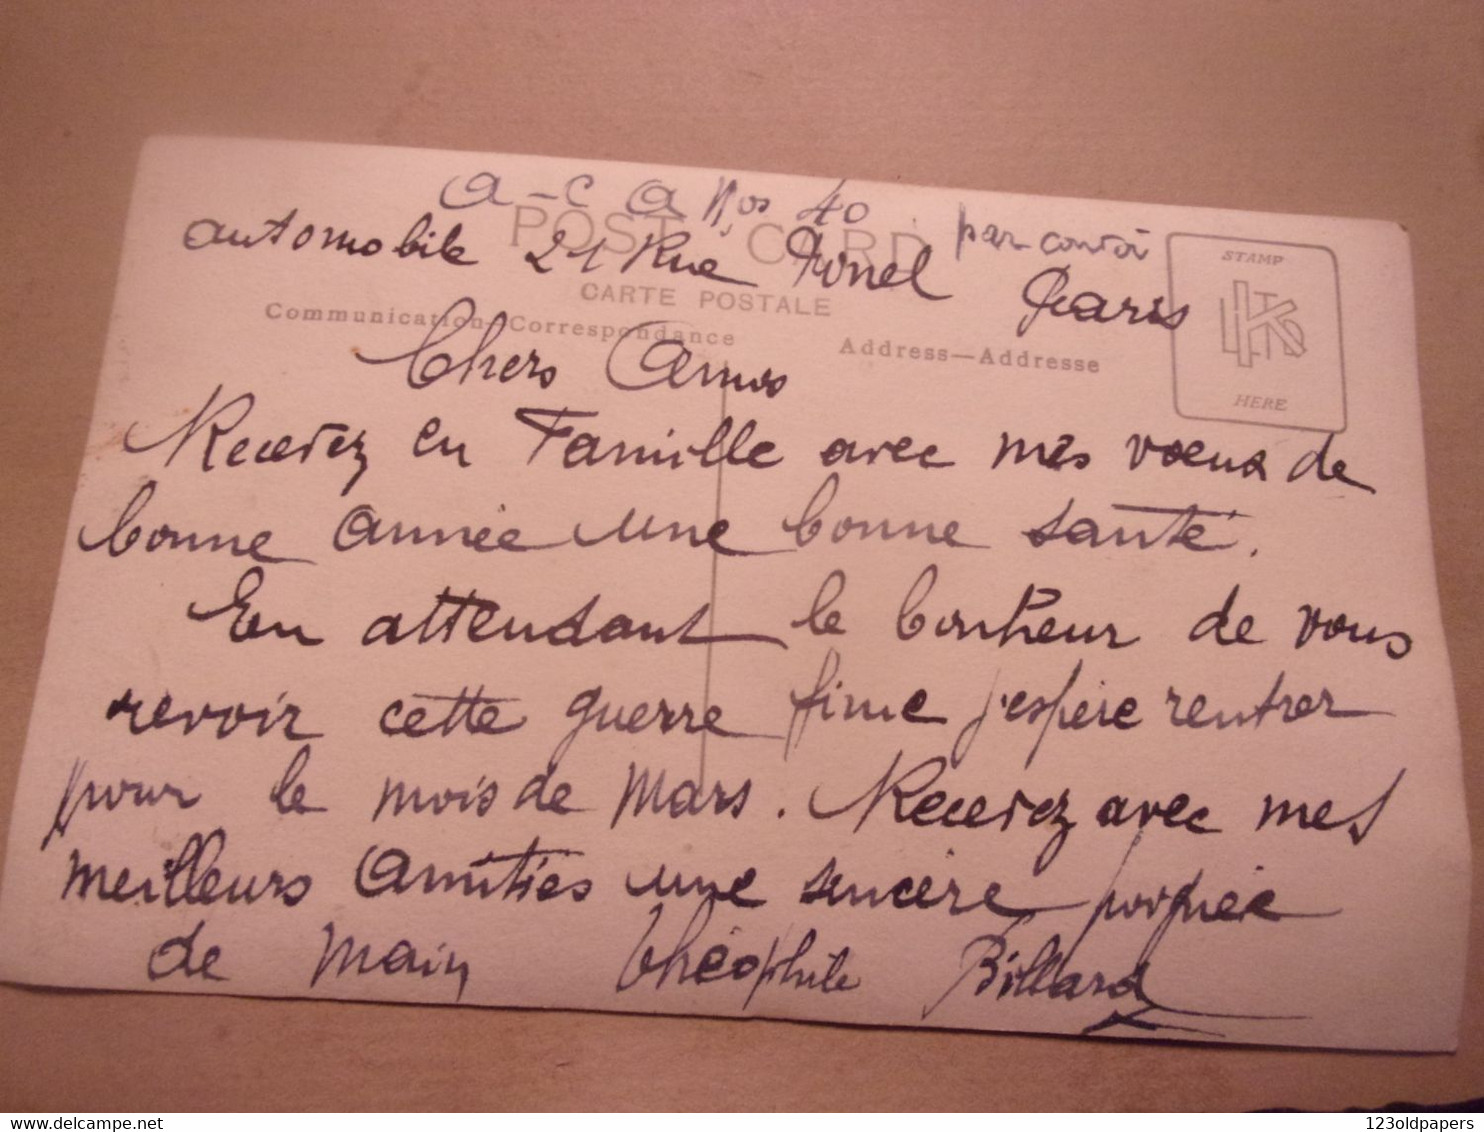 A-C A Nos 40
par convoi
automobile 21 Rue Paris
POST CARD
CARTE POSTALE
Communication—Correspondance
Address—Addresse
STAMP
HERE
Chers Amis
Recevez en Famille avec mes voeux de
bonne année une bonne santé.
En attendant le bonheur de vous
revoir cette guerre finie j'espère rentrer
pour le mois de Mars. Recevez avec mes
meilleurs Amitiés une sincère poignée
de main Théophile Billard
delcampe.net
123oldpapers